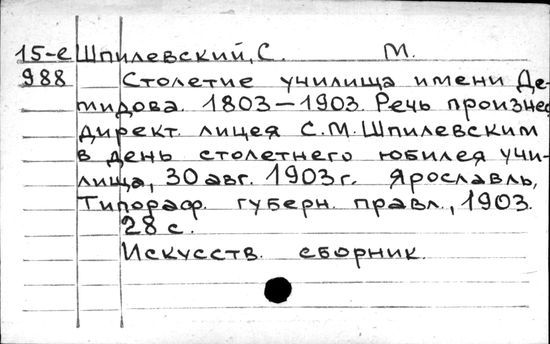 15-е Шпилевский, С. М.
988 Столетие училища имени Де-
мидова. 1803—1903. Речь произнес
директ. лицея С.М. Шпилевским
в день столетнего юбилея учи-
лища, 30 авг. 1903 г. Ярославль,
Типограф. губерн. правл., 1903.
28 с.
Искусств. сборник.